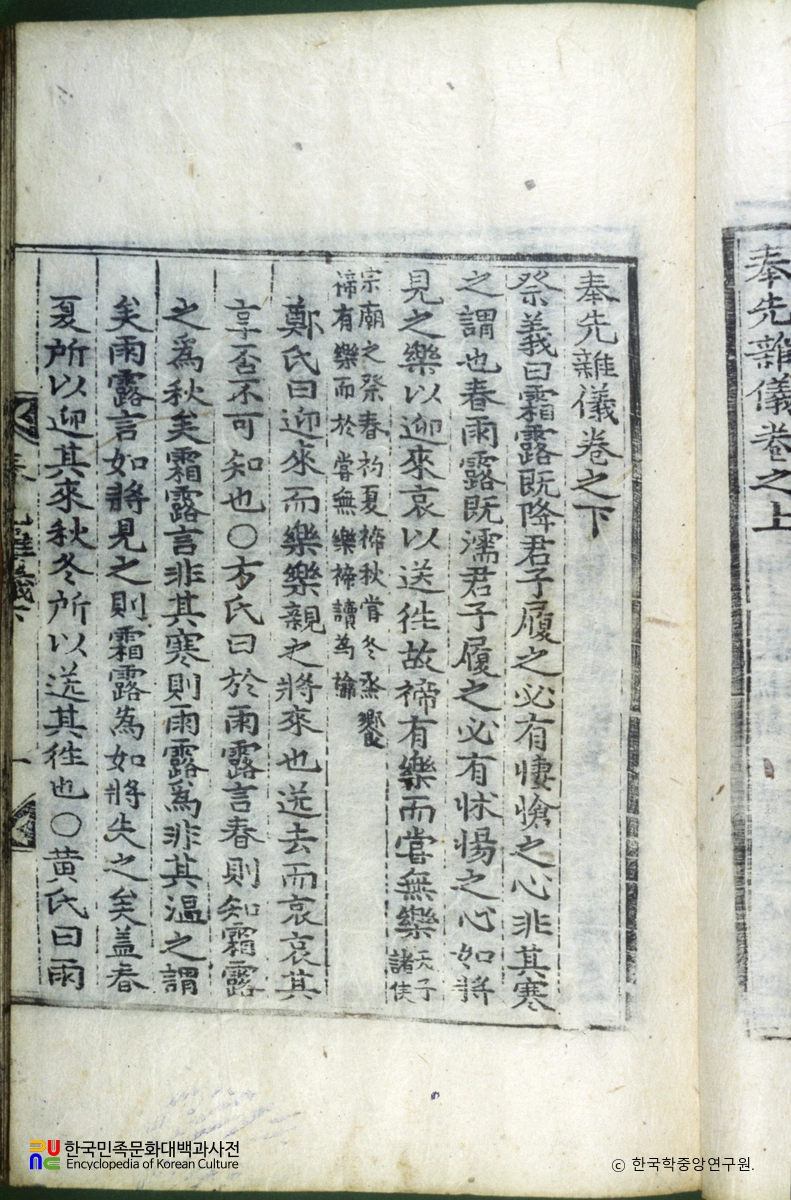 奉先雜儀卷之上
奉先雜儀卷之下
祭義曰霜露既降君子履之必有悽愴之心非其寒
之謂也春雨露既濡君子履之必有怵惕之心如將
見之樂以迎來哀以送徃故禘有樂而嘗無樂天子
諸侯
宗廟之祭春礿夏禘秋嘗冬烝饗
禘有樂而於嘗無樂禘讀為禴
鄭氏曰迎來而樂樂親之將來也送去而哀哀其
享否不可知也○方氏曰於雨露言春則知霜露
之爲秋矣霜露言非其寒則雨露爲非其溫之謂
矣雨露言如將見之則霜露為如將失之矣盖春
夏所以迎其來秋冬所以送其徃也○黄氏曰雨
一
한국민족문화대백과사전
Encyclopedia of Korean Culture
ⓒ 한국학중앙연구원.